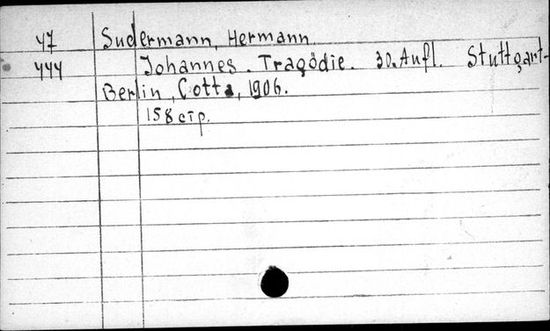 47 Sudermann, Hermann.
444 Johannes. Tragödie. 30. Aufl. Stuttgart-
Berlin, Cotta, 1906.
158 стр.